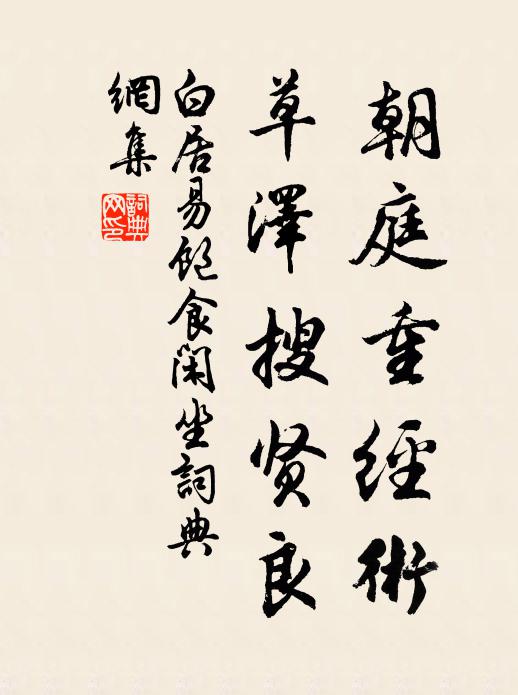 朝庭重經術
草澤搜贤良
白居易飽食閑坐詞典
網集
詞典
网印